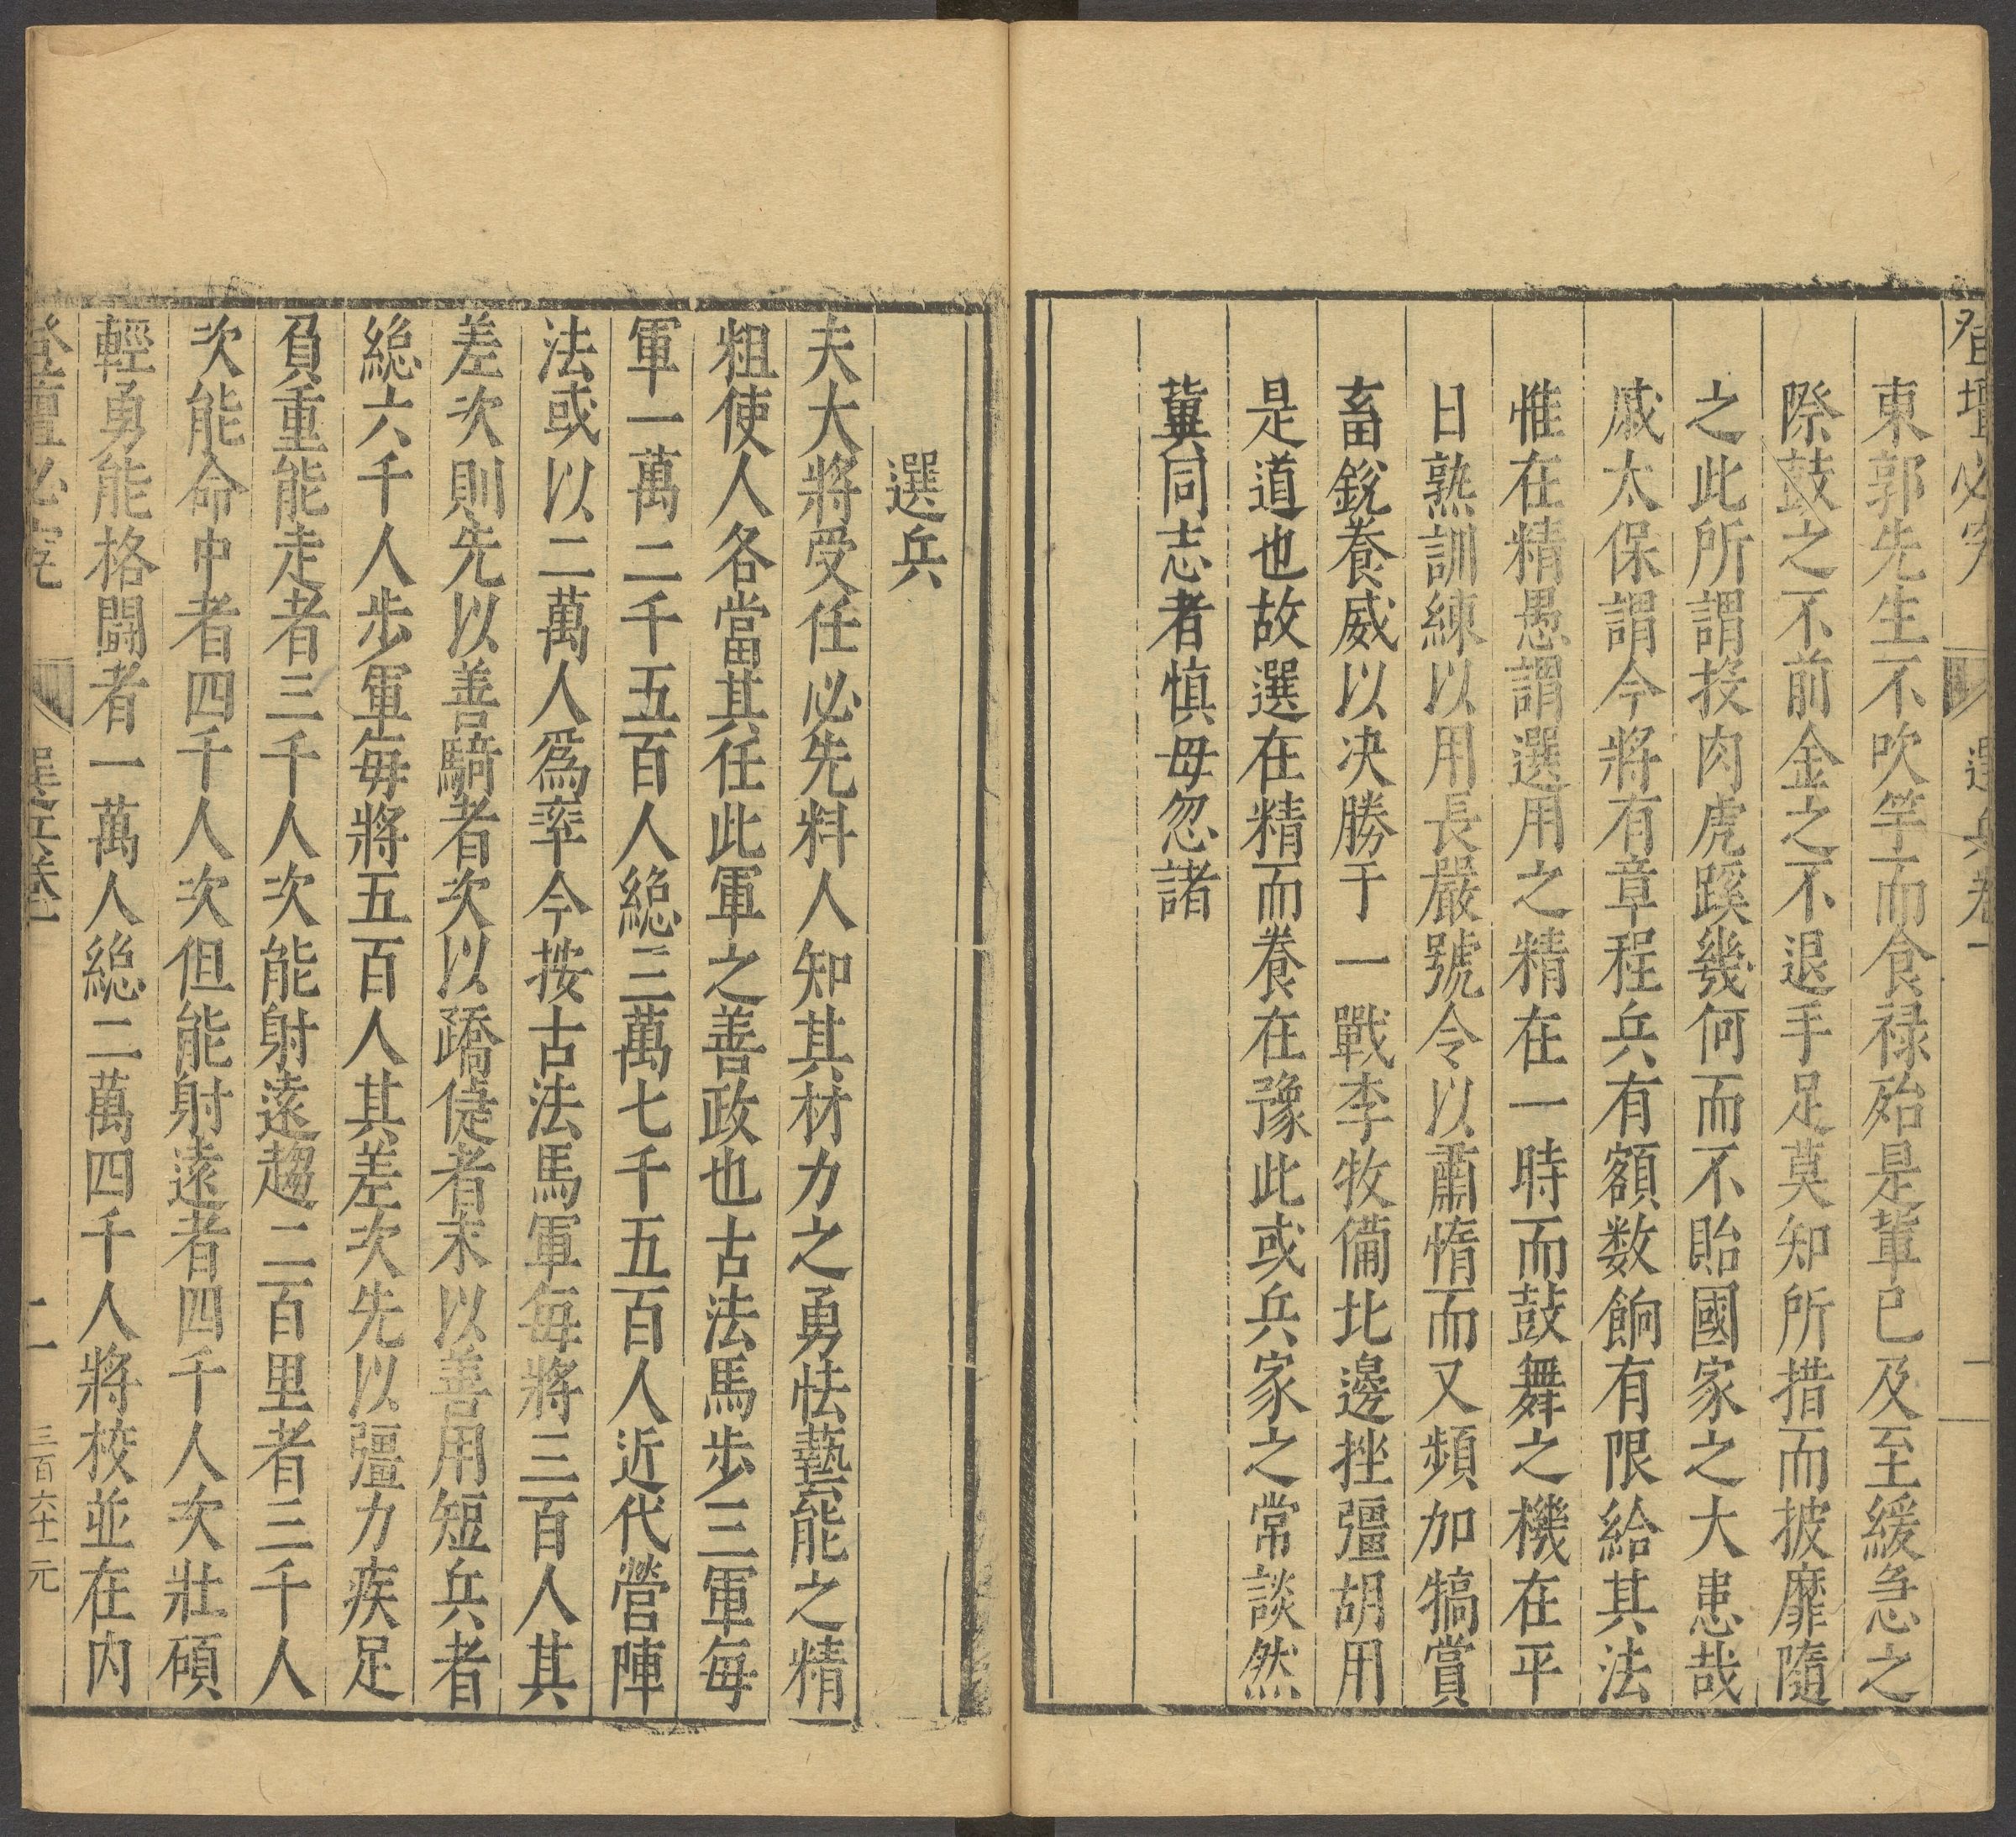 登壇必究 選兵卷一 二
東郭先生不吹竽而食禄殆是輩已及至緩急之
際鼓之不前金之不退手足莫知所措而披靡隨
之此所謂投肉虎蹊幾何而不貽國家之大患哉
戚太保謂今將有章程兵有額数餉有限給其法
惟在精愚謂選用之精在一時而鼓舞之機在平
日熟訓練以用長嚴號令以肅惰而又頻加犒賞
畜銳養威以决勝于一戰李牧備北邊挫彊胡用
是道也故選在精而養在豫此或兵家之常談然
冀同志者慎毋忽諸
選兵
夫大將受任必先料人知其材力之勇怯藝能之精
粗使人各當其任此軍之善政也古法馬步三軍每
軍一萬二千五百人緫三萬七千五百人近代營陣
法或以二萬人爲率今按古法馬軍每將三百人其
差次則先以善騎者次以蹻倢者末以善用短兵者
緫六千人步軍每將五百人其差次先以彊力疾足
負重能走者三千人次能射遠趨二百里者三千人
次能命中者四千人次但能射遠者四千人次壯碩
輕勇能格鬪者一萬人緫二萬四千人將校並在内
登壇必究 選兵卷一 二 三百六十一 元